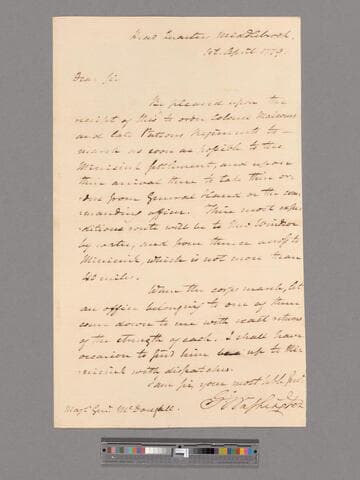 Head Quarters Middlebrook.
1st. April 1779.
Dear Sir
Be pleased upon the
receipt of this to order Colonel Malcoms
and late Pattons Regiments to
march as soon as possible to the
Minisink settlement, and upon
their arrival there to take their or-
ders from General Hand or the com-
manding officer. Their most expe-
ditious route will be to New Windsor
by water, and from thence across to
Minisink which is not more than
40 miles.
When the corps march, let
an officer belonging to one of them
come down to me with exact returns
of the strength of each. I shall have
occasion to send him up to the
minisink with dispatches.
I am Sir your most
Go: Washington
Majr. Genl. McDougall.